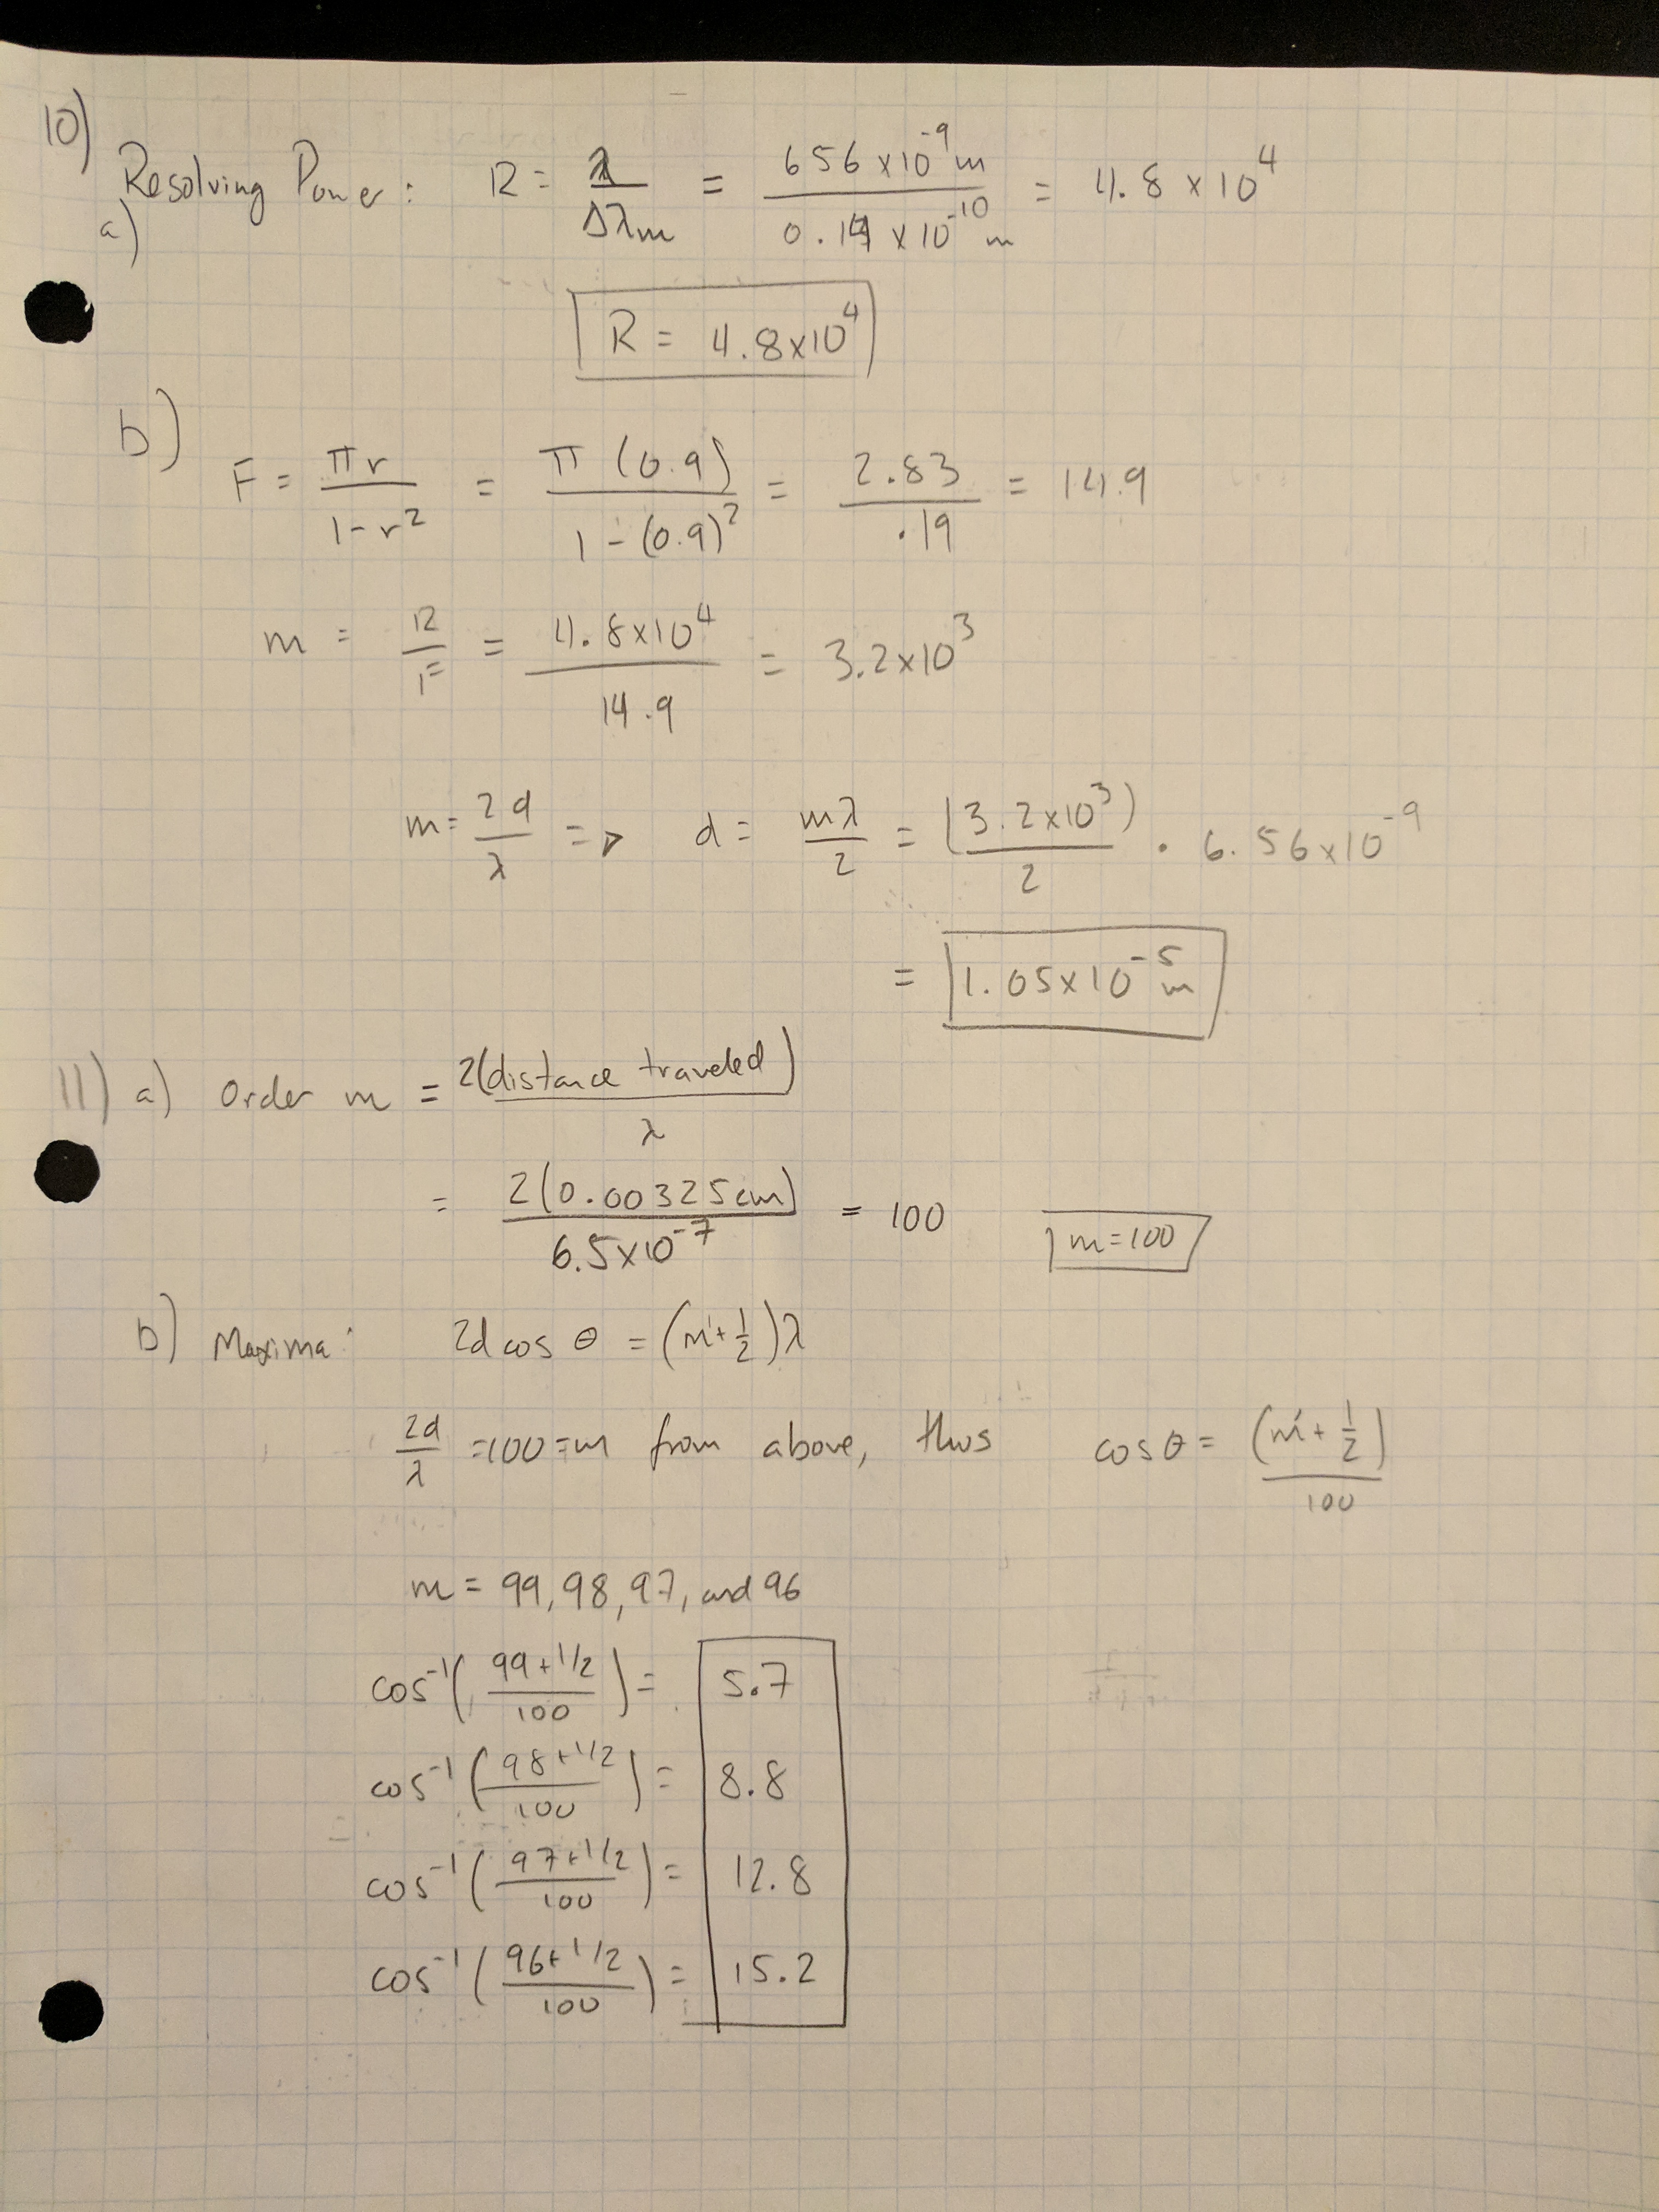 10)
Resolving Power: R = λ/Δλm = 656 x 10^-9 m / 0.14 x 10^-10 m = 4.8 x 10^4
a)
R = 4.8x10^4
b)
F = πr/1-r^2 = π(0.9)/1-(0.9)^2 = 2.83/.19 = 14.9
m = R/F = 4.8x10^4/14.9 = 3.2x10^3
m = 2d/λ => d = mλ/2 = (3.2x10^3)/2 · 6.56x10^-9
= 1.05x10^-5 m
11) a) Order m = 2(distance traveled)/λ
= 2(0.00325cm)/6.5x10^-7 = 100 m=100
b) Maxima: 2d cos θ = (m'+1/2)λ
2d/λ =100=m from above, thus cosθ = (m'+1/2)/100
m = 99,98,97, and 96
cos^-1(99+1/2/100) = 5.7
cos^-1(98+1/2/100) = 8.8
cos^-1(97+1/2/100) = 12.8
cos^-1(96+1/2/100) = 15.2